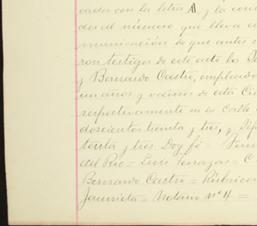 cados con la letra A y la con
dos el número que lleva
municación de que antes
ron testigos de este acto los
y Bernardo Castro, empleado
un años y vecinos de esta Ciu
respectivamente en la Calle
doscientos treinta y tres, y
treinta y tres Doy fé =
del Rio = Luis Terrazas = C
Bernardo Castro = Rúbricas
Jaurrieta = Notario nº 4 =